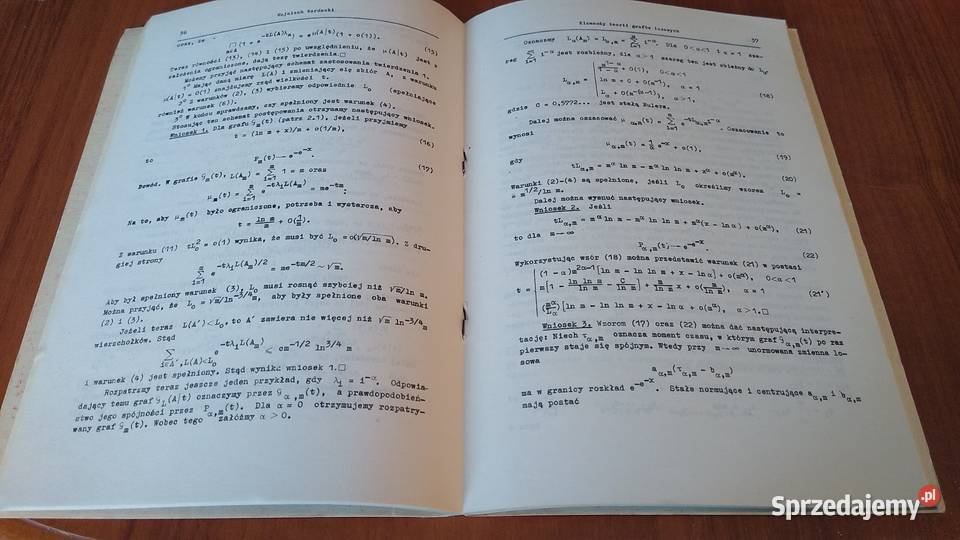 56
Wojciech Kordecki
oraz, że
∏ (1 + e^{-tL(A)λ_i}) = e^{μ(A|t)}(1 + o(1)). (15)
Teraz równości (13), (14) i (15) po uwzględnieniu, że μ(A|t) jest z
założenia ograniczone, dają tezę twierdzenia.□
Możemy przyjąć następujący schemat zastosowania twierdzenia 1.
1° Mając daną miarę L(A) i zmieniający się zbiór A, z warunku
μ(A|t) = O(1) znajdujemy rząd wielkości t.
2° Z warunków (2), (3) wybieramy odpowiednie L₀ (spełniające
również warunek (6)).
3° W końcu sprawdzamy, czy spełniony jest warunek (4).
Stosując ten schemat postępowania otrzymamy następujący wniosek.
Wniosek 1. Dla grafu 𝒢_m(t) (patrz 2.1), jeżeli przyjmiemy
t = (ln m + x)/m + o(1/m), (16)
to
P_m(t) → e^{-e^{-x}}. (17)
Dowód. W grafie 𝒢_m(t), L(A_m) = ∑_{i=1}^{m} 1 = m oraz
μ_m(t) = ∑_{i=1}^{m} e^{-tλ_iL(A_m)} = me^{-tm}.
Na to, aby μ_m(t) było ograniczone, potrzeba i wystarcza, aby
t = ln m / m + O(1/m).
Z warunku (11) tL₀² = o(1) wynika, że musi być L₀ = o(√(m/ln m)). Z dru-
giej strony
∑_{i=1}^{m} e^{-tλ_iL(A_m)/2} = me^{-tm/2} ~ √m.
Aby był spełniony warunek (3), L₀ musi rosnąć szybciej niż √m/ln m.
Można przyjąć, że L₀ = √m/ln^{-3/4}m, aby były spełnione oba warunki
(2) i (3).
Jeżeli teraz L(A') < L₀, to A' zawiera nie więcej niż √m ln^{-3/4} m
wierzchołków. Stąd
∑_{i∈A', L(A)<L₀} e^{-tλ_iL(A_m)} ⩽ cm^{-1/2} ln^{3/4} m
i warunek (4) jest spełniony. Stąd wynika wniosek 1.□
Rozpatrzmy teraz jeszcze jeden przykład, gdy λ_i = i^{-α}. Odpowia-
dający temu graf 𝒢_L(A|t) oznaczymy przez 𝒢_{α,m}(t), a prawdopodobień-
stwo jego spójności przez P_{α,m}(t). Dla α = 0 otrzymujemy rozpatry-
wany graf 𝒢_m(t). Wobec tego załóżmy α > 0.
Elementy teorii grafów losowych
57
Oznaczmy L_α(A_m) = L_{α,m} = ∑_{i=1}^{m} i^{-α}. Dla 0<α<1 i α = 1 sze-
reg ∑_{i=1}^{∞} i^{-α} jest rozbieżny, dla α > 1 szereg ten jest zbieżny do L_α:
m^{1-α}/(1-α) + O(1), 0<α<1
L_{α,m} = ln m + C + O(m^{-1}), α = 1 (18)
L_α + O(m^{-(α-1)}), α > 1,
gdzie C = 0,5772... jest stałą Eulera.
Dalej można oszacować μ_{α,m}(t) = ∑_{i=1}^{m} e^{-tL_{α,m}i^{-α}}. Oszacowanie to
wynosi
μ_{α,m}(t) = 1/α e^{-x} + o(1), (19)
gdy
tL_{α,m} = m^α ln m − m^α ln ln m + xm^α + o(m^α). (20)
Warunki (2)-(4) są spełnione, jeśli L₀ określimy wzorem L₀ =
= m^{1/2}/ln m.
Dalej możemy wysnuć następujący wniosek.
Wniosek 2. Jeśli
tL_{α,m} = m^α ln m − m^α ln ln m + m^α(x − ln α) + o(m^α), (21)
to dla m → ∞
P_{α,m}(t) → e^{-e^{-x}}. (22)
Wykorzystując wzór (18) można przedstawić warunek (21) w postaci
(1 − α)m^{2α−1}[ln m − ln ln m + x − ln α] + o(m^α), 0<α<1
t = m[1 − ln ln m/ln m − C/ln m] + m/ln m x + o(m/ln m), α = 1 (21')
(m^α/L_α)[ln m − ln ln m + x − ln α + o(m^α), α > 1.□
Wniosek 3. Wzorom (17) oraz (22) można dać następującą interpre-
tację: Niech τ_{α,m} oznacza moment czasu, w którym graf 𝒢_{α,m}(t) po raz
pierwszy staje się spójnym. Wtedy przy m → ∞ unormowana zmienna lo-
sowa
a_{α,m}(τ_{α,m} − b_{α,m})
ma w granicy rozkład e^{-e^{-x}}. Stałe normujące i centrujące a_{α,m} i b_{α,m}
mają postać
Sprzedajemy.pl